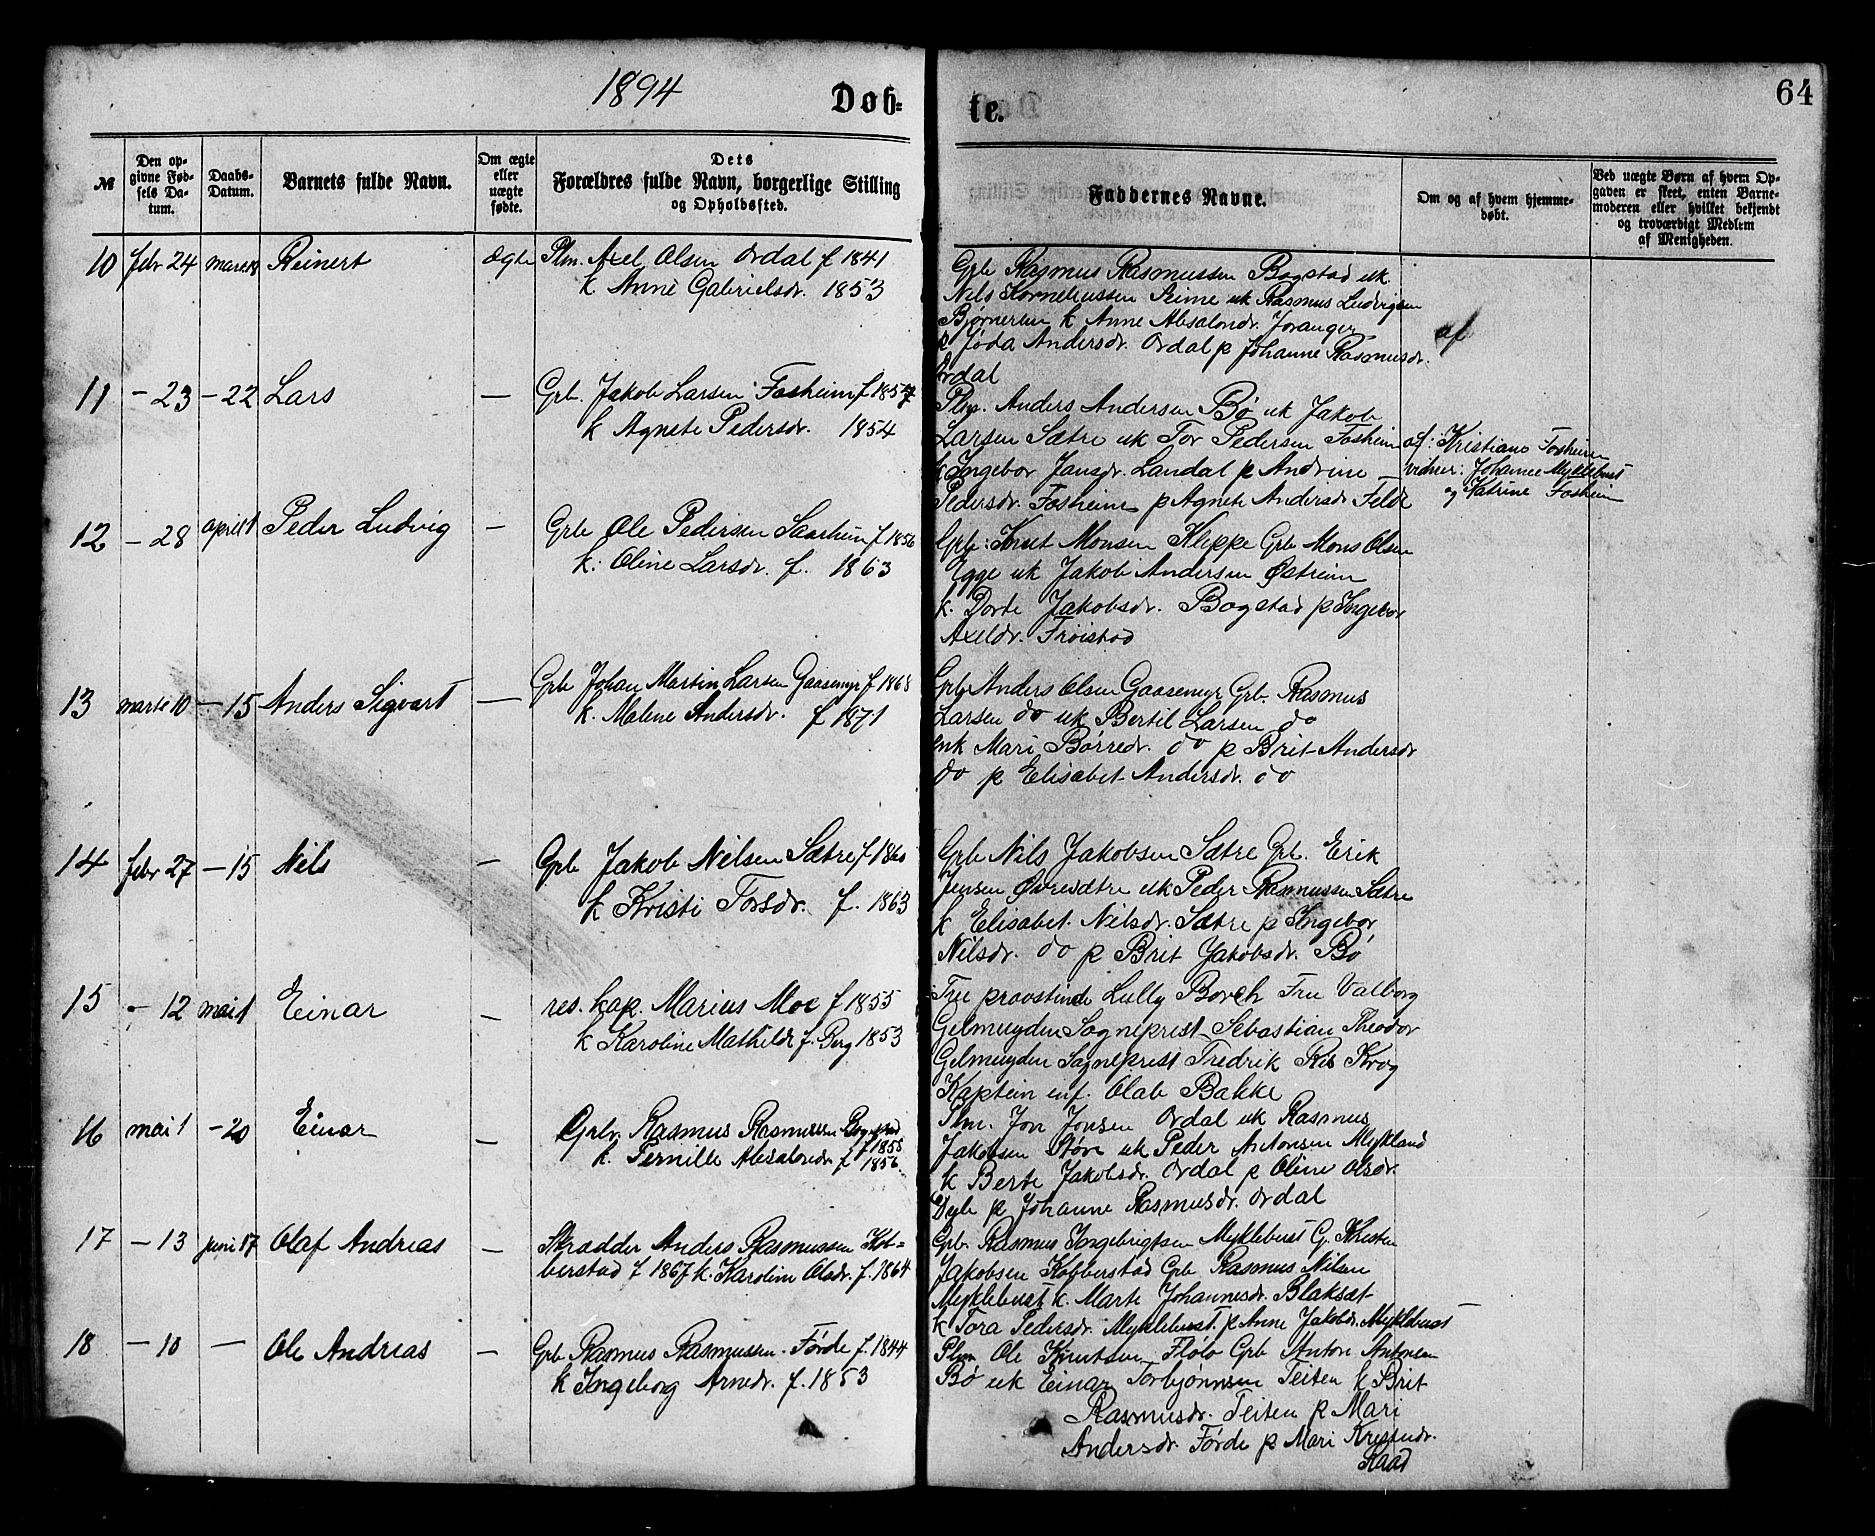 1894
Döb=
te.
64
№
Den op-
givne Fød-
sels Da-
tum.
Daabs-
Datum.
Barnets fulde Navn.
Om ægte
eller
uægte
fødte.
Dets
Forældres fulde Navn, borgerlige Stilling
og Opholdssted.
Faddernes Navne.
Om og af hvem hjemme-
døbt.
Ved uægte Børn af hvem Op-
gaven er skeet, enten Barne-
moderen eller hvilket bekjendt
og troværdigt Medlem
af Menigheden.
10 febr 24 Reinert Ægte Plm. Axel Olsen Ordal f 1841
k Anne Gabrielsdr. 1853
Grb Rasmus Rasmussen Bogstad uk
Nils Korneliussen Seime uk Rasmus Ludvigsen
k Anne Absalondr. Joranger
p Joda Andersdr. Ordal p Johanne Rasmusdr.
Ordal
af
11 - 23 - 22 Lars — Grb. Jakob Larsen Fosheim f 1857
k Agnete Pedersdr. 1854
Plm. Anders Andersen Bö uk Jakob
Larsen Sætre uk Tor Pedersen Fosheim
k Ingebor Jansdr. Landal p Andrine
Pedersdr. Fosheim p Agnete Andersdr Felde
af: Kristiane Fosheim
vidner: Johanne Myklebust
og Katrine Fosheim
12 - 28 april 1 Peder Ludvig - Grb Ole Pedersen f 1856
k. Oline Larsdr. f. 1863
Grb. Knut Monsen Kleppe Grb Mons Olsen
Egge uk Jakob Andersen Østreim
k. Dorte Jakobsdr. Bogstad p Ingebor
Axeldr. Fröistad
13 marts 10 - 15 Anders Sigvart — Grb Johan Martin Larsen Gaasemyr f 1868
k. Malene Andersdr. f 1871
Grb Anders Olsen Gaasemyr Grb. Rasmus
Larsen do uk Bertil Larsen do
enk Mari Börredr. do p Brit Andersdr
do p Elisabet Andersdr. do
14 febr 27 - 15 Nils - Grb Jakob Nilsen Sætre f 1860
k Kristi Torsdr. f. 1863
Grb Nils Jakobsen Sætre Grb. Erik
Jensen Övresætre uk Peder Rasmussen Sætre
k Elisabet Nilsdr. Sætre p Ingebor
Nilsdr. do p Brit Jakobsdr. Bö
15 - 12 mai 1 Einar - res. kap. Marius Moe f 1855
k Karoline Mathilde f. Berg 1853
Fru provstinde Lully Borch Fru Valborg
Gelmuyden Sogneprest Sebastian Theodor
Gelmuyden Sogneprest Fredrik Riis Krog
Kaptein inf. Olab Bakke
16 mai 1 - 20 Einar - Grb. Rasmus Rasmussen Bogstad
f 1855
k. Pernille Absalondr. f 1856
Plm. Jon Jonsen Ordal uk Rasmus
Jakobsen Støve uk Peder Antonsen Mykland
k Berte Jakobsdr. Ordal p Oline Olsdr.
p Johanne Rasmusdr. Ordal
17 - 13 juni 17 Olaf Andreas - Skrædder Anders Rasmussen Kob-
berstad f 1867 k. Karoline Olsdr. f. 1864
Grb. Rasmus Ingebrigtsen Myklebust G. Kristen
Jakobsen Kobberstad Grb Rasmus Nilsen
Myklebust k. Marte Johannesdr. Blaksæt
k Tora Pedersdr. Myklebust p Anne Jakobsdr. Myklebust
18 - 10 - Ole Andreas - Grb Rasmus Rasmussen Førde f. 1844
k Ingeborg Arnedr. f. 1853
Plm Ole Knutsen Flølo Grb Anton Antonsen
Bö uk Einar Torbjönnsen Teiten k Brit
Rasmusdr. Teiten p Mari
Andersdr. Førde p Mari Kristendr.